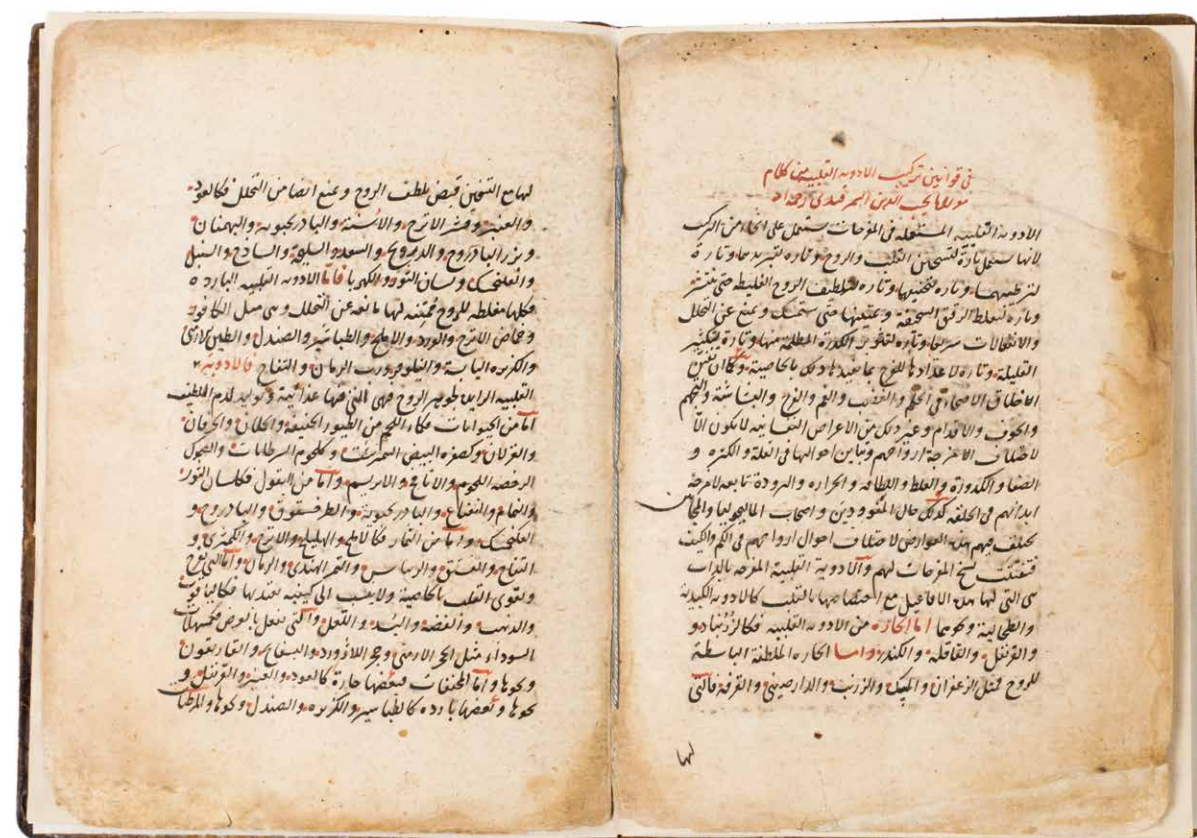 في قوانين تركيب الادوية القلبية من كلام
مولانا نجيب الدين السمرقندي رحمه الله
الادوية القلبية المستعملة في المفرحات تستعمل على انحاء من التركيب
لانها تستعمل تارة لتسخين القلب والروح وتارة لتبريدهما وتارة
لترطيبهما وتارة لتجفيفهما وتارة لتلطيف الروح الغليظة حتى تنتشر
وتارة لتغليظ الرقيق السخيفة وتمتينها حتى تستمسك وتمنع عن التحلل
والانفعالات سريعا وتارة لتنوير الكدرة المظلمة منها وتارة لتكثير
القليلة وتارة لاعدادها للفرح بما يفيدها ذلك بالخاصية وكما ان تفنن
اخلاق الاصحاء في الحلم والغضب والغم والفرح والبشاشة والتجهم
والخوف والاقدام وغير ذلك من الاعراض النفسانية لا يكون الا
لاختلاف الامزجة ارواحهم وتباين احوالها في القلة والكثرة و
الصفا والكدورة والغلظ واللطافة والحرارة والبرودة تابعة لامزجة
ابدانهم في الخلقة كذلك حال المفؤودين واصحاب الماليخوليا والمجانين
يختلف فيهم هذه العوارض لاختلاف احوال ارواحهم في الكم والكيف
نسخ المفرحات لهم والادوية القلبية المفرحة بالذات
هي التي لها هذه الافاعيل مع اختصاصها بالقلب كالادوية الكبدية
والطحالية ونحوهما اما الحارة من الادوية القلبية فكالزرنباد و
والقرنفل والقاقلة والكندر واما الحارة الملطفة الباسطة
للروح فمثل الزعفران والمسك والزرنب والدارصيني والقرفة فالتي
لها
لها مع التسخين قبض يلطف الروح وتمنع ايضا من التحلل فكالعود
والعنبر وقشر الاترج والاشنة والبادرنجبوية والبهمنان
وبزر البادروج والدرونج والسعد والسليخة والساذج والسنبل
والفلنجمشك ولسان الثور والكهربا فاما الادوية القلبية الباردة
فكلها مغلظة للروح ممتنة لها مانعة عن التحلل وهي مثل الكافور
وحماض الاترج والورد والاملج والطباشير والصندل والطين الارمني
والكزبرة اليابسة والنيلوفر ورب الرمان والتفاح فالادوية
القلبية الزايدة لجوهر الروح فهي التي فيها غذائية وتوليد لدم اللطيف
اما من الحيوانات فكماء اللحم من الطيور الخفيفة والحملان والخرفان
والغزلان وكصفرة البيض النيمرشت وكلحوم السرطانات والسموك
الرخصة اللحوم والانافح والابريسم واما من البقول فكلسان الثور
والنمام والنعناع والبادرنجبوية والطرخشقوق والبادروج و
الفلنجمشك واما من الثمار فكالاملج والهليلج والاترج والكمثرى و
التفاح والفستق والريباس والتمر الهندي والرمان واما التي تفرح
وتقوي القلب بالخاصية ولا ينسب الى كيفية تعتد بها فكالياقوت
والذهب والفضة والبسد واللعل والتي تفعل بالعرض فكمسهلات
السوداء مثل الحجر الارمني وحجر اللازورد والبسفايج والغاريقون
ونحوها واما المجففات فبعضها حارة كالعود والعنبر والقرنفل و
نحوها وبعضها باردة كالطباشير والكزبرة والصندل ونحوها والمرطبات